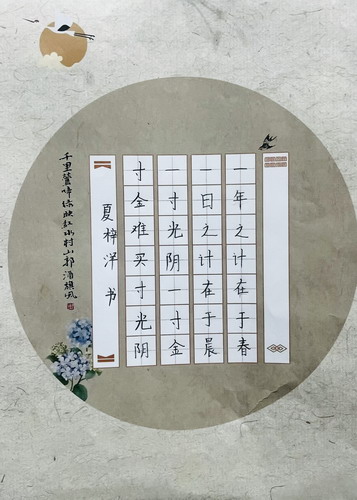 一年之计在于春
一日之计在于晨
一寸光阴一寸金
寸金难买寸光阴
夏梓洋 书
千里莺啼绿映红水村山郭酒旗风